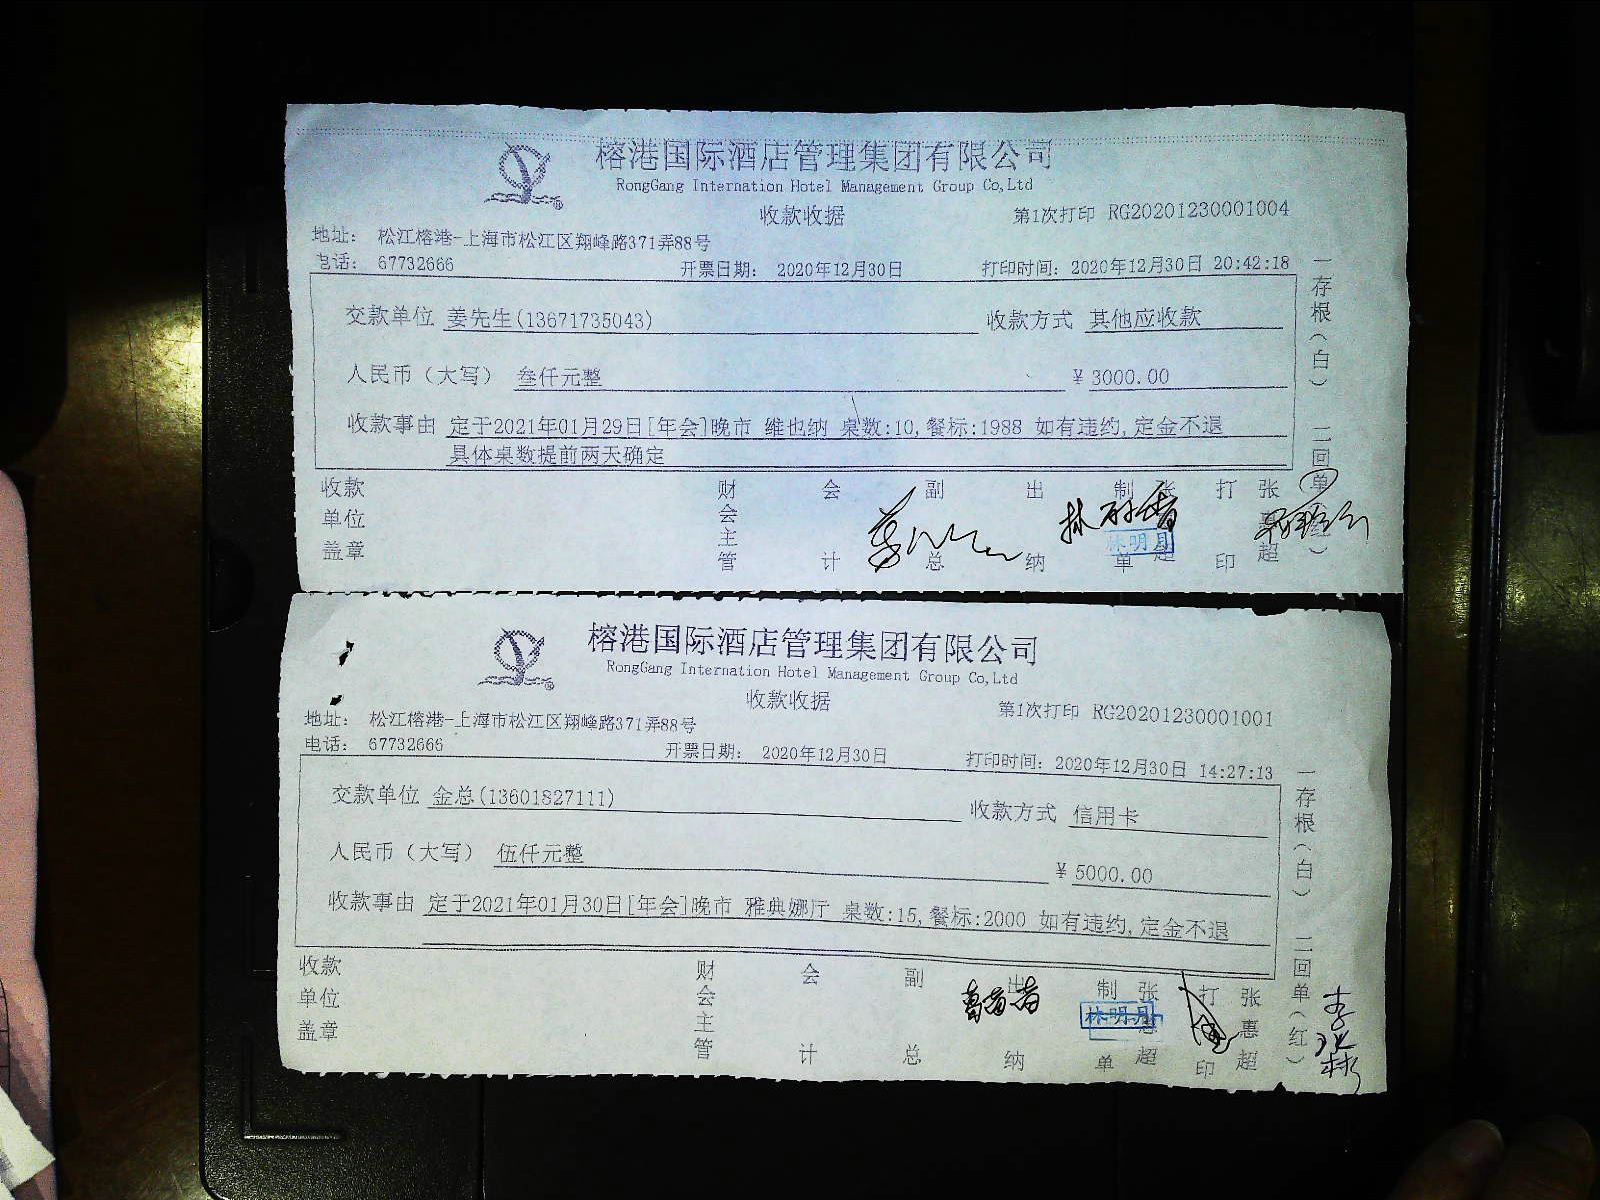 榕港国际酒店管理集团有限公司
RongGang Internation Hotel Management Group Co,Ltd
收款收据
第1次打印 RG20201230001004
地址： 松江榕港-上海市松江区翔峰路371弄88号
电话： 67732666
开票日期： 2020年12月30日
打印时间：2020年12月30日 20:42:18
交款单位 姜先生(13671735043)
收款方式 其他应收款
人民币（大写） 叁仟元整
¥ 3000.00
收款事由 定于2021年01月29日[年会]晚市 维也纳 桌数:10,餐标:1988 如有违约,定金不退
具体桌数提前两天确定
一存根（白） 二回单
收款单位盖章
财会主管
会计
副总
出纳
制单
张惠超
打印
张惠超
林明月
榕港国际酒店管理集团有限公司
RongGang Internation Hotel Management Group Co,Ltd
收款收据
第1次打印 RG20201230001001
地址： 松江榕港-上海市松江区翔峰路371弄88号
电话： 67732666
开票日期： 2020年12月30日
打印时间：2020年12月30日 14:27:13
交款单位 金总(13601827111)
收款方式 信用卡
人民币（大写） 伍仟元整
¥ 5000.00
收款事由 定于2021年01月30日[年会]晚市 雅典娜厅 桌数:15,餐标:2000 如有违约,定金不退
一存根（白） 二回单（红）
收款单位盖章
财会主管
会计
副总
出纳
制单
张惠超
打印
张惠超
林明月